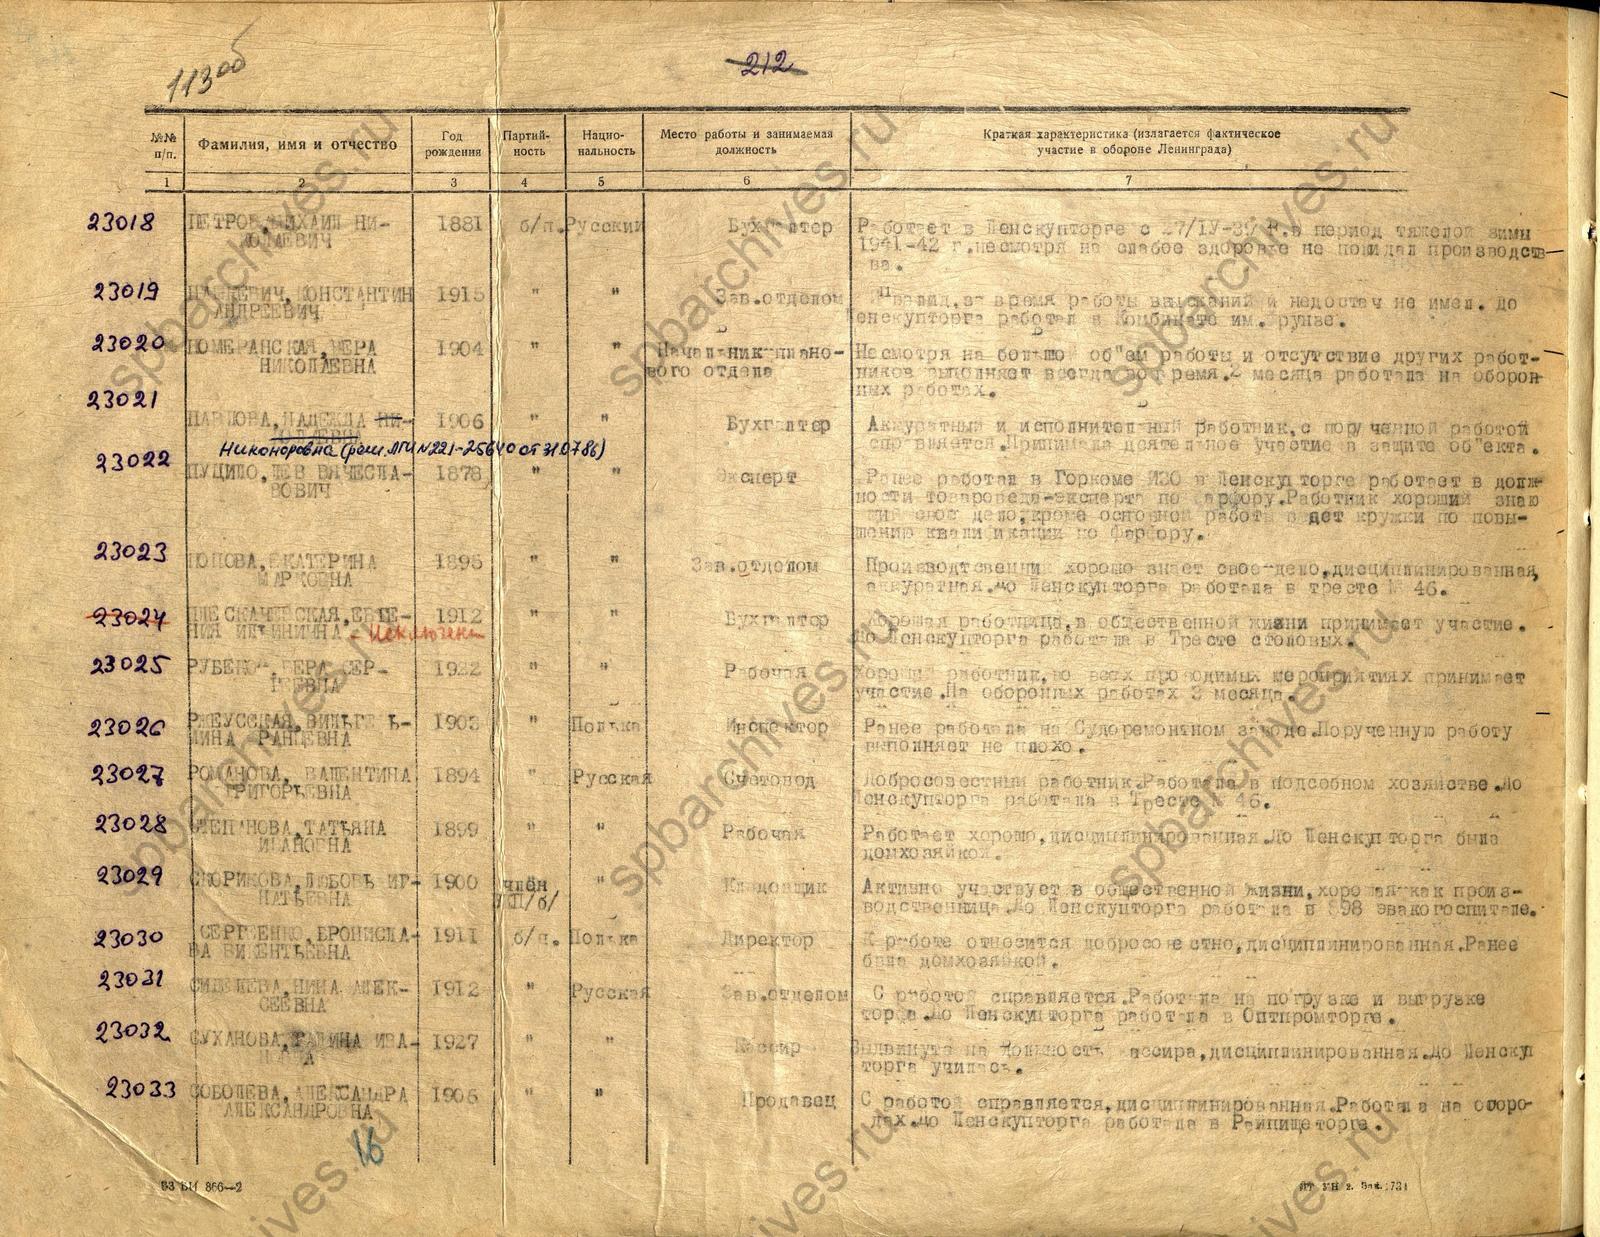 113об
212
№№ п/п. Фамилия, имя и отчество Год рождения Партий-ность Нацио-нальность Место работы и занимаемая должность Краткая характеристика (излагается фактическое участие в обороне Ленинграда)
1 2 3 4 5 6 7
23018 ПЕТРОВ, МИХАИЛ НИ- 1881 б/п. Русский Бухгалтер Работает в Ленскупторге с 27/IУ-39 г. в период тяжелой зимы
КОЛАЕВИЧ 1941-42 г. несмотря на слабое здоровье не покидал производств
ва.
23019 КОНСТАНТИН 1915 " " Зав.отделом за время работы взысканий и недостач не имел. До
АНДРЕЕВИЧ Ленскупторга работал в Комбинате им.
23020 ПОМЕРАНСКАЯ, ВЕРА 1904 " " Начальник плано- Несмотря на большой об"ем работы и отсутствие других работ-
НИКОЛАЕВНА вого отдела ников выполняет всегда во время. 2 месяца работала на оборон
ных работах.
23021 ПАВЛОВА, НАДЕЖДА НИ- 1906 " " Бухгалтер Аккуратный и исполнительный работник, с порученной работой
справляется. Принимала деятельное участие в защите об"екта.
Никоноровна (реш. ЛГИ №221-25640 от 310786)
23022 ПУЦИЛО, ЛЕВ ВЯЧЕСЛА- 1878 " " Эксперт Ранее работал в Горкоме ИЗО в Ленскупторге работает в долж-
ВОВИЧ ности товароведа-эксперта по фарфору. Работник хороший знаю
щий свое дело, кроме основной работы ведет кружки по повы-
шению квалификации по фарфору.
23023 ПОПОВА, ЕКАТЕРИНА 1895 " " Зав.отделом Производственник хорошо знает свое дело, дисциплинированная,
МАРКОВНА аккуратная. До Ленскупторга работала в тресте № 46.
23024 ПЛЕСКАЧЕВСКАЯ, ЕВГЕ- 1912 " " Бухгалтер Хорошая работница, в общественной жизни принимает участие.
НИЯ ИЛЬИНИЧНА - Исключена До Ленскупторга работала в Тресте столовых.
23025 ВЕРА СЕР- 1922 " " Рабочая Хороший работник, во всех проводимых мероприятиях принимает
ГЕЕВНА участие. На оборонных работах 3 месяца.
23026 РЖЕУССКАЯ, ВИЛЬГЕЛЬ- 1903 " Полька Инспектор Ранее работала на Судоремонтном заводе. Порученную работу
МИНА ФРАНЦЕВНА выполняет не плохо.
23027 РОМАНОВА, ВАЛЕНТИНА 1894 " Русская Счетовод Добросовестный работник. Работала в подсобном хозяйстве. До
ГРИГОРЬЕВНА Ленскупторга работала в Тресте № 46.
23028 СТЕПАНОВА, ТАТЬЯНА 1899 " " Рабочая Работает хорошо, дисциплинированная. До Ленскупторга была
ИВАНОВНА домхозяйкой.
23029 СКОРИКОВА, ЛЮБОВЬ ИГ- 1900 член " Кладовщик Активно участвует в общественной жизни, хорошая как произ-
НАТЬЕВНА ВКП/б/ водственница. До Ленскупторга работала в 898 эвакогоспитале.
23030 СЕРГЕЕНКО, БРОНИСЛА- 1911 б/п. Полька Директор К работе относится добросовестно, дисциплинированная. Ранее
ВА ВИКЕНТЬЕВНА была домхозяйкой.
23031 НИНА АЛЕК- 1912 " Русская Зав.отделом С работой справляется. Работала на погрузке и выгрузке
СЕЕВНА торфа. До Ленскупторга работала в Оптпромторге.
23032 СУХАНОВА, ГАЛИНА ИВА- 1927 " " Кассир Выдвинута на должность кассира, дисциплинированная. До Ленскуп
НОВНА торга училась.
23033 СОБОЛЕВА, АЛЕКСАНДРА 1906 " " Продавец С работой справляется, дисциплинированная. Работала на огоро-
АЛЕКСАНДРОВНА дах. До Ленскупторга работала в Райпищеторге.
16
spbarchives.ru